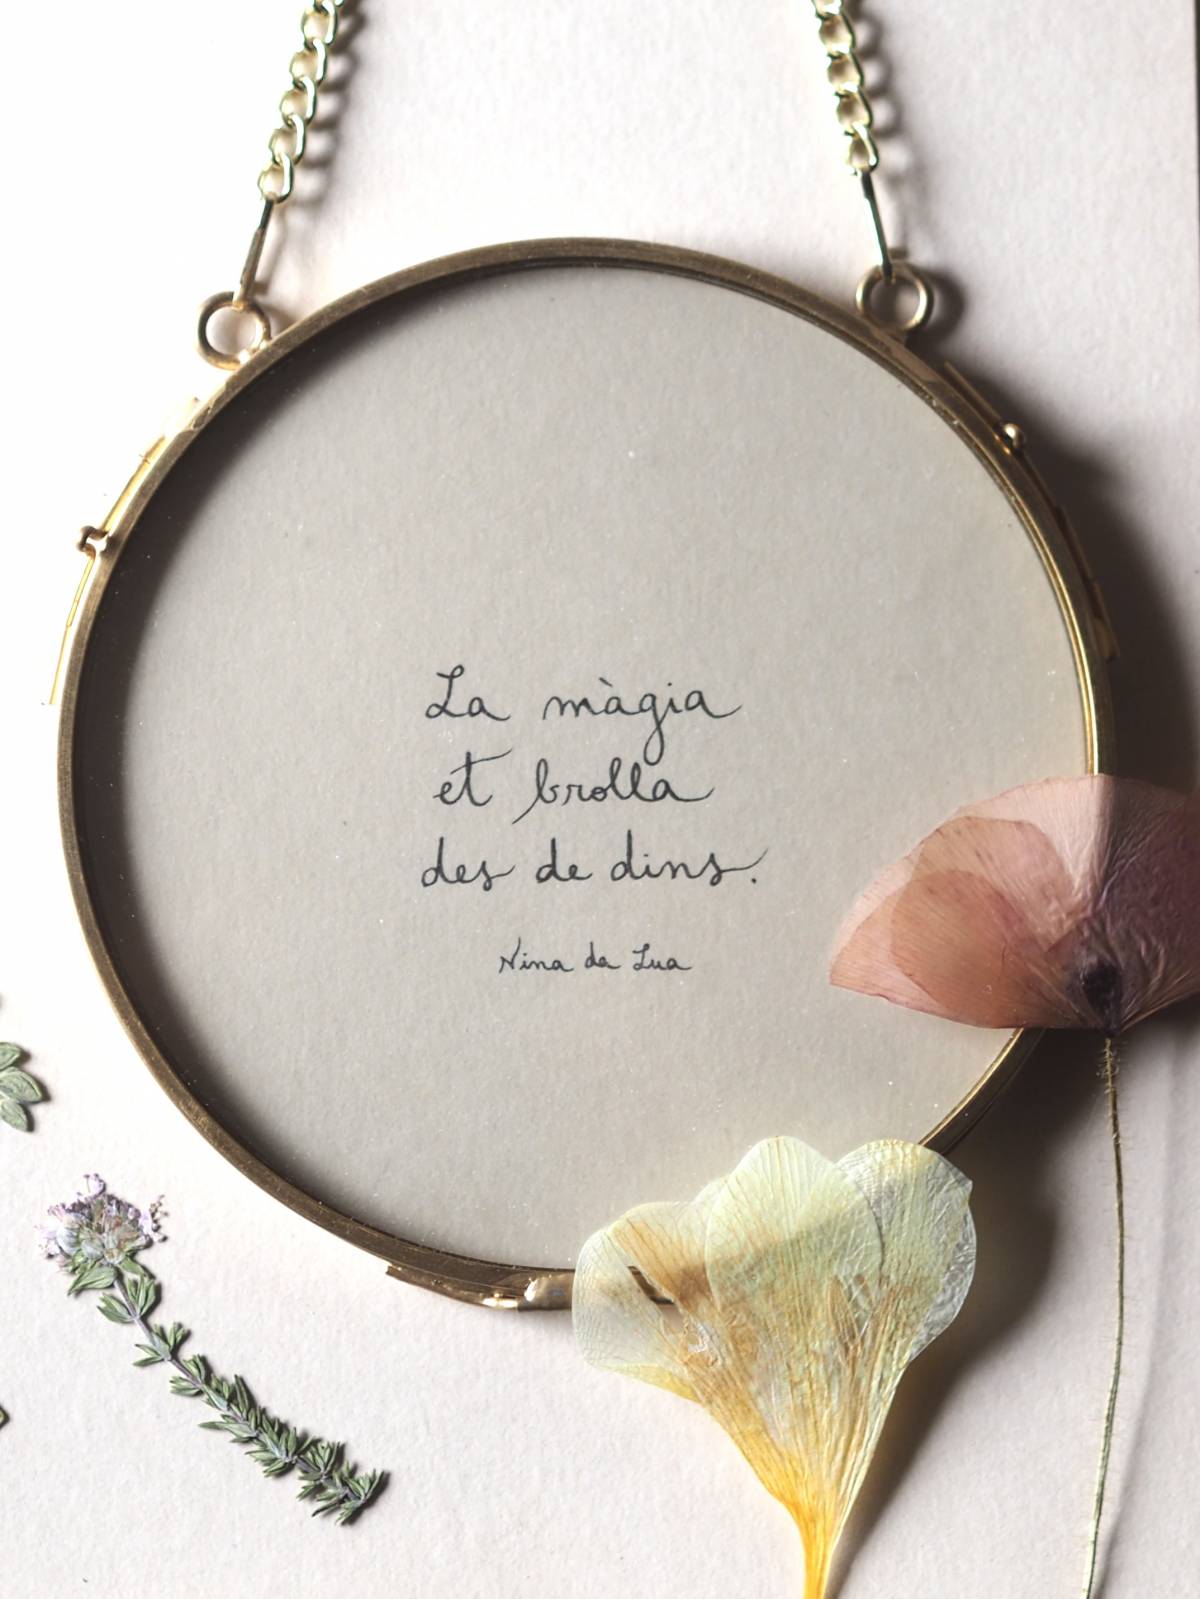 La màgia
et brolla
des de dins.
Nina da Lua